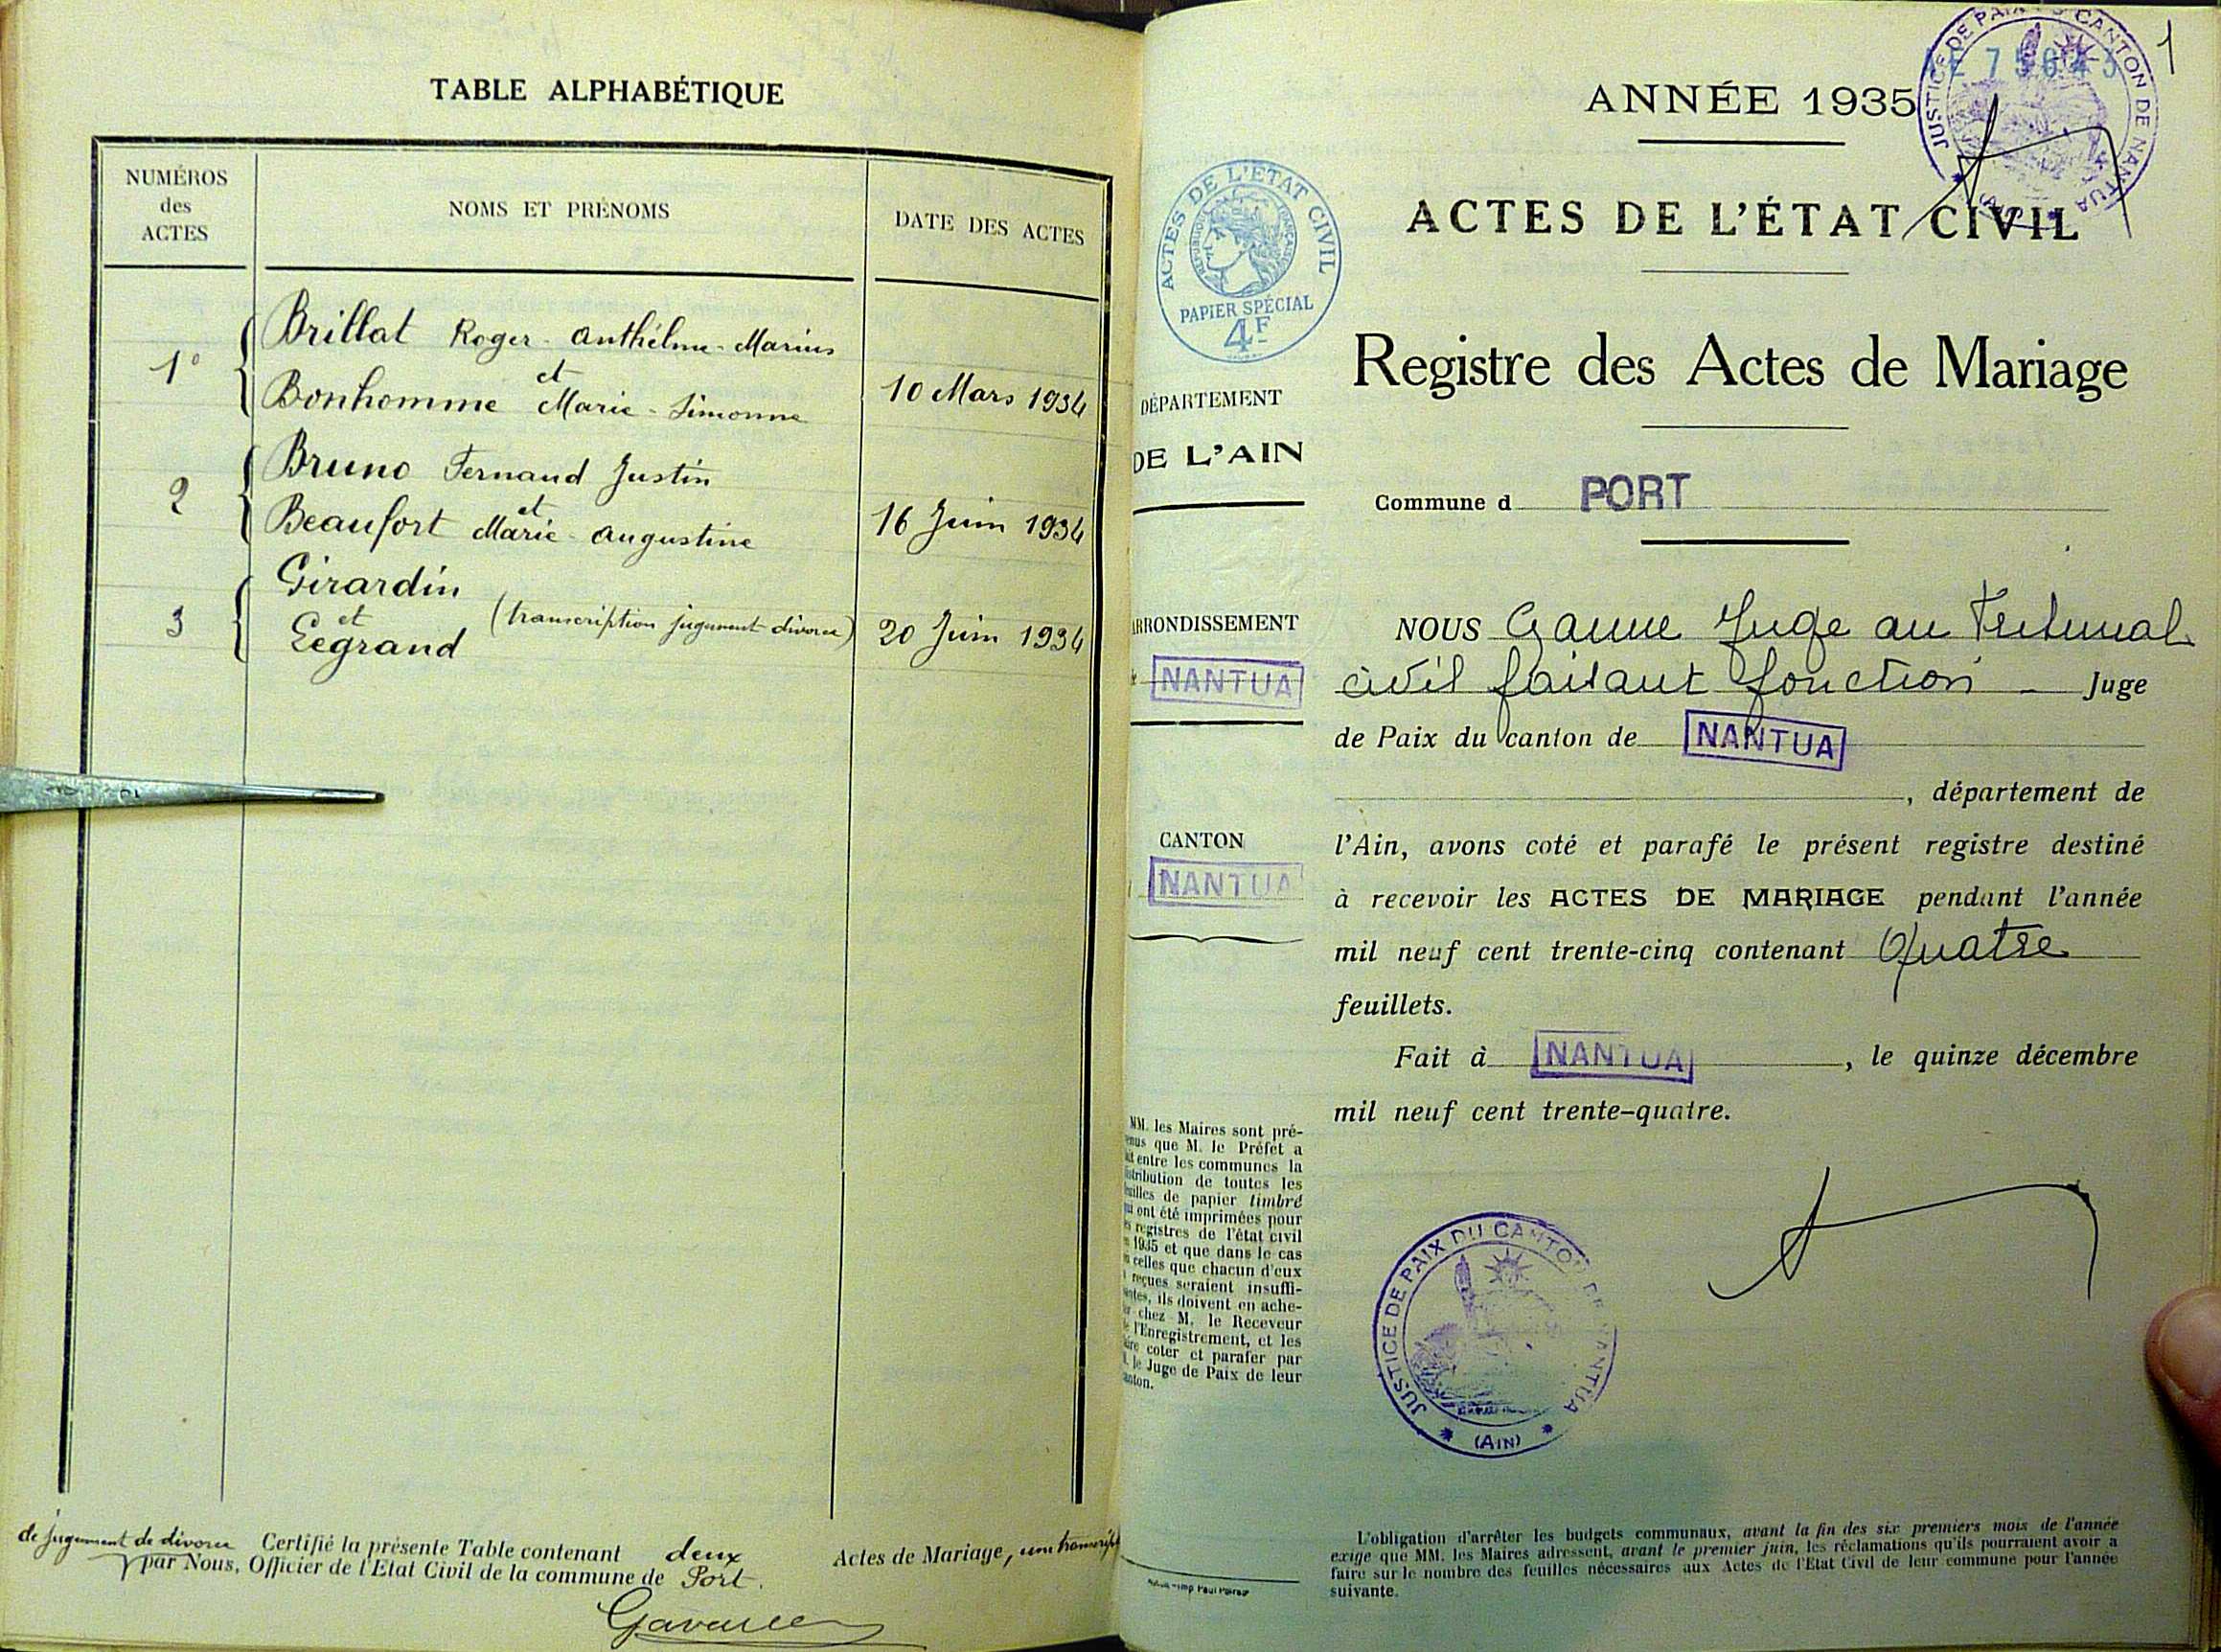 TABLE ALPHABÉTIQUE
NUMÉROS
des
ACTES
NOMS ET PRÉNOMS
DATE DES ACTES
1° Brillat Roger - Anthelme - Marius
et
Bonhomme Marie - Simonne 10 Mars 1934
2 Bruno Fernand Justin
et
Beaufort Marie - Augustine 16 Juin 1934
Girardin
3 et (transcription jugement divorce) 20 Juin 1934
Legrand
de jugement de divorce Certifié la présente Table contenant deux Actes de Mariage, une
par Nous, Officier de l'Etat Civil de la commune de Port.
1
JUSTICE DE PAIX DU CANTON DE NANTUA
ANNÉE 1935
ACTES DE L'ÉTAT CIVIL
Registre des Actes de Mariage
Commune d PORT
NOUS Ganne Juge au Tribunal
civil faisant fonction - Juge
de Paix du canton de NANTUA
, département de
l'Ain, avons coté et parafé le présent registre destiné
à recevoir les ACTES DE MARIAGE pendant l'année
mil neuf cent trente-cinq contenant Quatre
feuillets.
Fait à NANTUA, le quinze décembre
mil neuf cent trente-quatre.
JUSTICE DE PAIX DU CANTON DE NANTUA
(AIN)
ACTES DE L'ETAT CIVIL
REPUBLIQUE FRANÇAISE
PAPIER SPÉCIAL
4F
DÉPARTEMENT
DE L'AIN
ARRONDISSEMENT
NANTUA
CANTON
NANTUA
MM. les Maires sont pré-
que M. le Préfet a
entre les communes la
de toutes les
de papier timbré
ont été imprimées pour
registres de l'état civil
1935 et que dans le cas
celles que chacun d'eux
reçues seraient insuffi-
ils doivent en ache-
chez M. le Receveur
l'Enregistrement, et les
coter et parafer par
le Juge de Paix de leur
L'obligation d'arrêter les budgets communaux, avant la fin des six premiers mois de l'année
exige que MM. les Maires adressent, avant le premier juin, les réclamations qu'ils pourraient avoir à
faire sur le nombre des feuilles nécessaires aux Actes de l'Etat Civil de leur commune pour l'année
suivante.